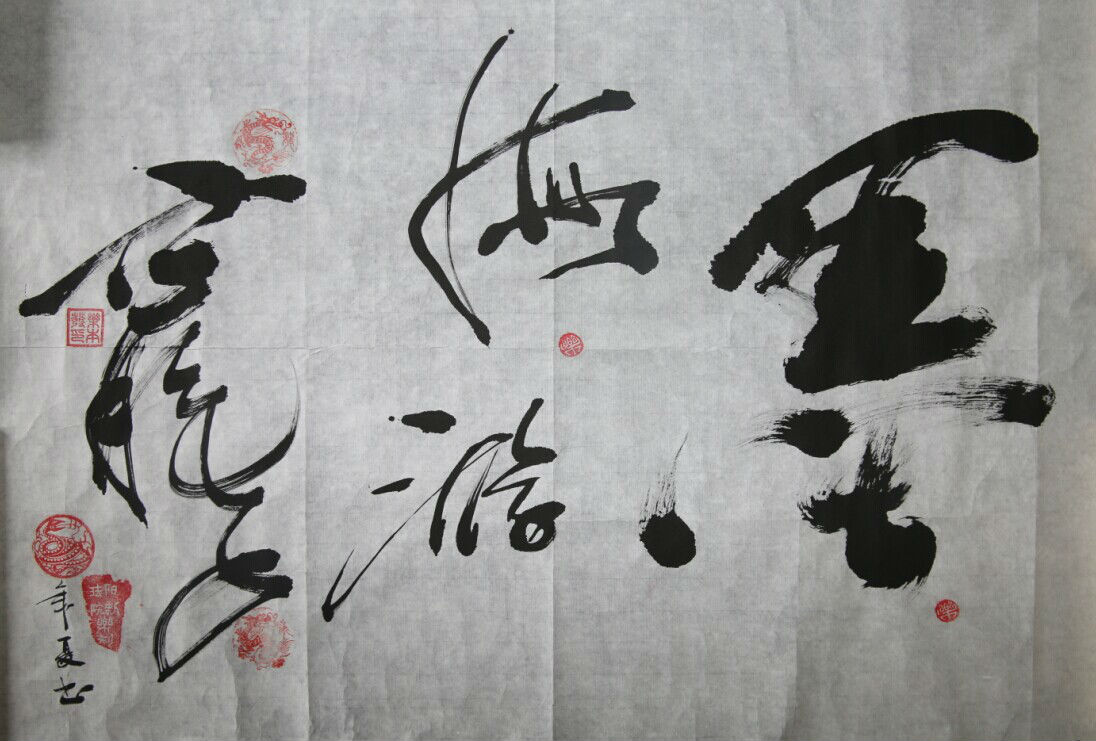 墨
海游
龍
年夏书